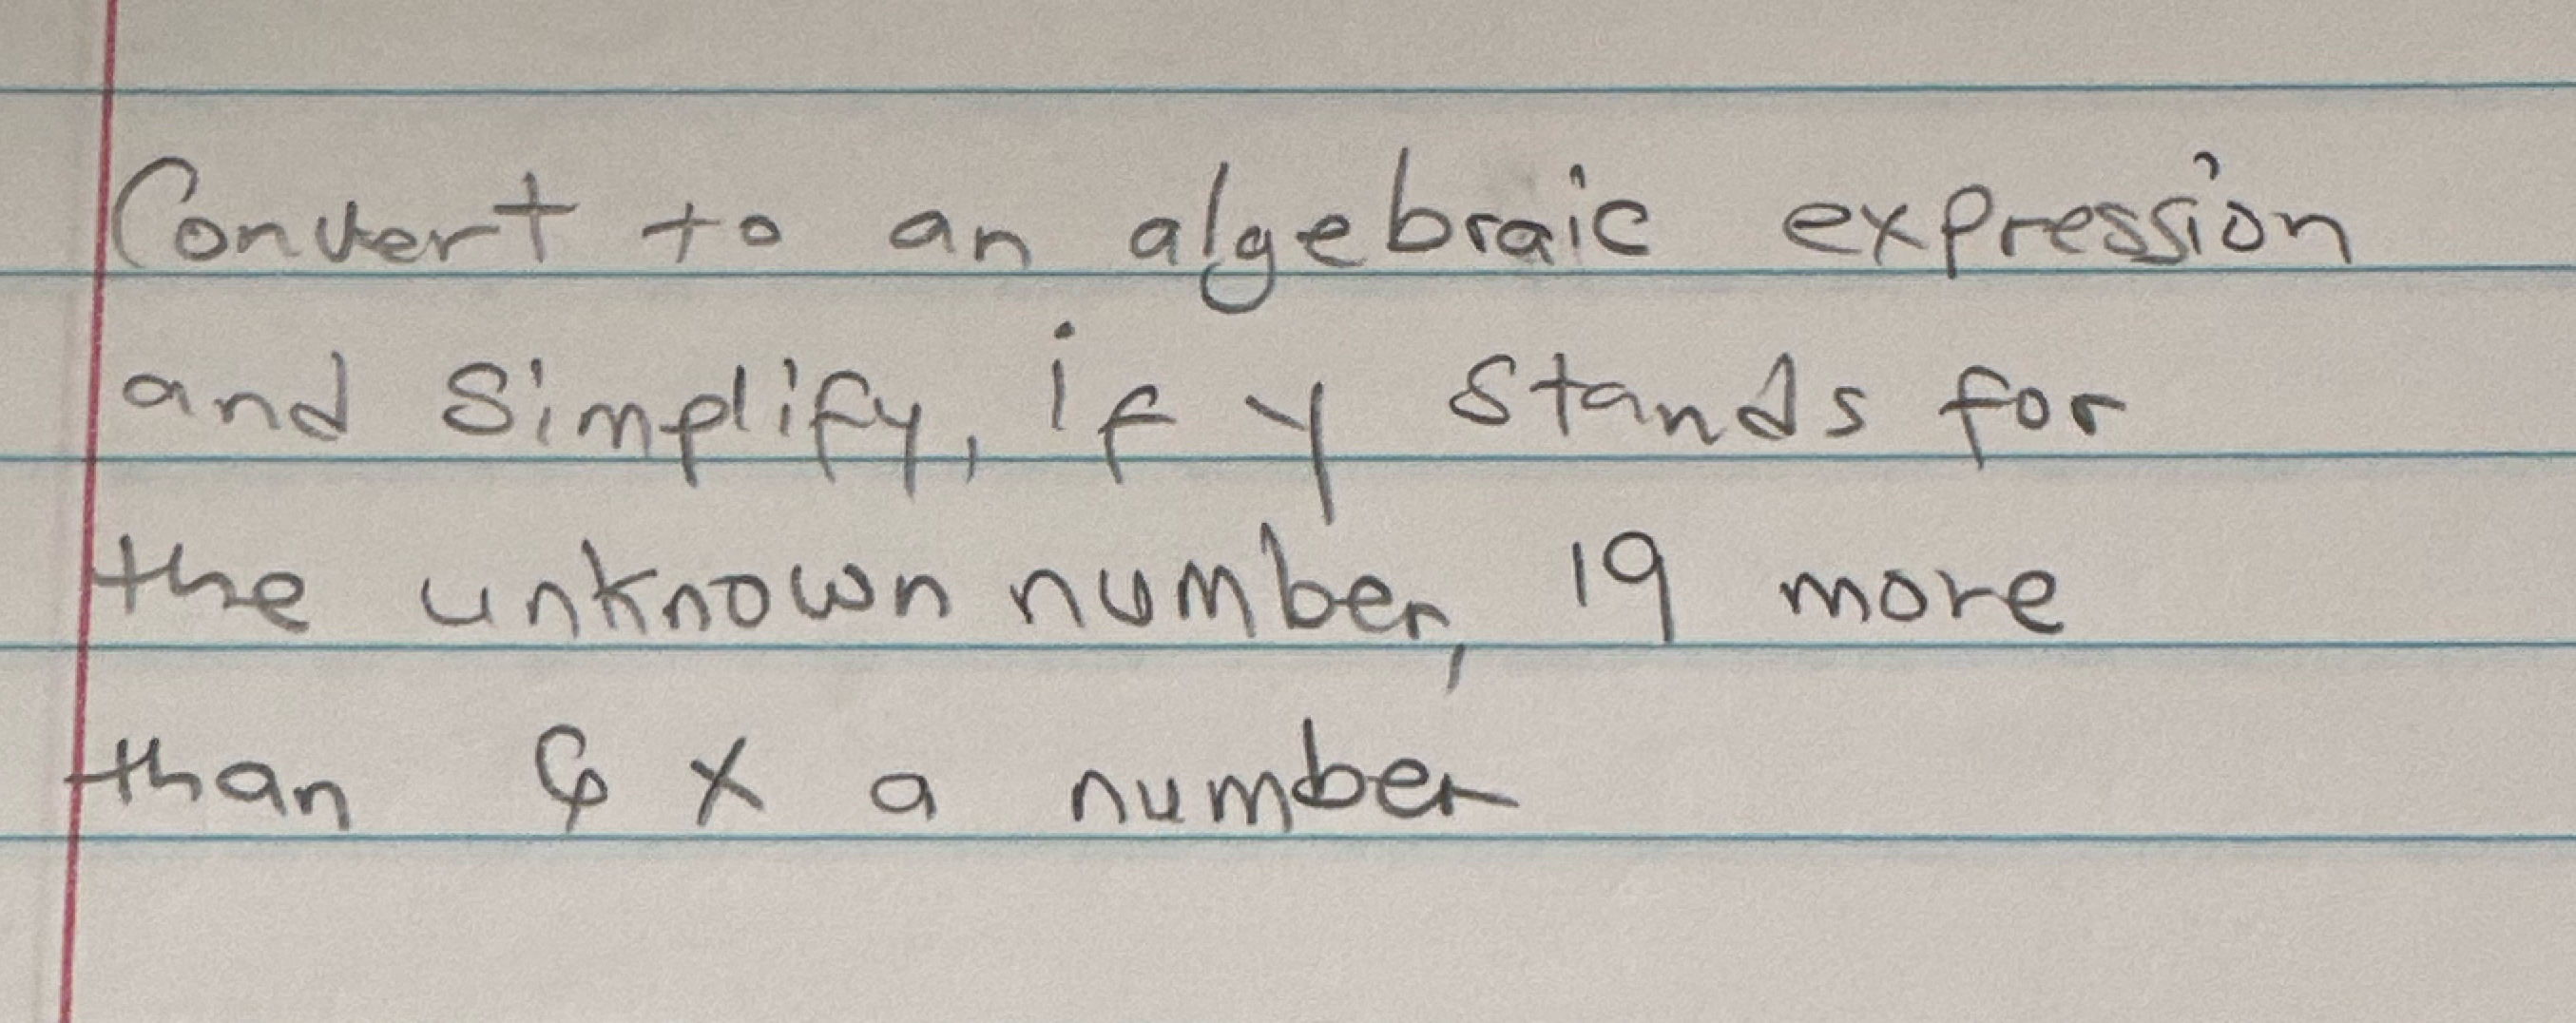 Convert to an algebraic expression
and simplify, if y stands for
the unknown number, 19 more
than x a number